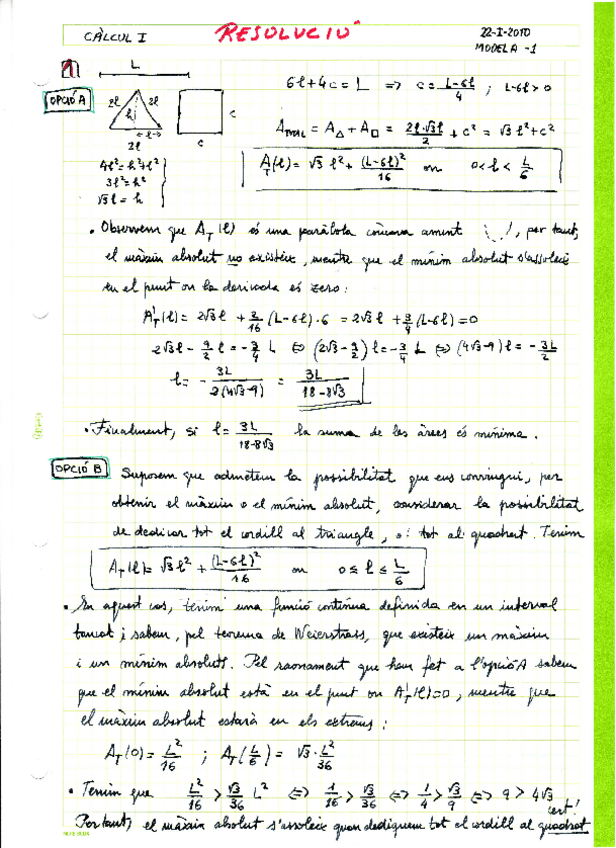 CÀLCUL I RESOLUCIÓ 22-I-2010
MODEL A -1
1 L 6ℓ+4c = L ⇒ c = (L-6ℓ)/4 ; L-6ℓ > 0
OPCIÓ A
2ℓ 2ℓ h ℓ 2ℓ c c
A_TOTAL = A_Δ + A_□ = (2ℓ·√3ℓ)/2 + c² = √3 ℓ² + c²
4ℓ² = h²+ℓ²
3ℓ² = h²
√3 ℓ = h
A_T(ℓ) = √3 ℓ² + (L-6ℓ)²/16 on 0<ℓ<L/6
• Observem que A_T(ℓ) és una paràbola còncava amunt, per tant,
el màxim absolut no existeix, mentre que el mínim absolut s'assoleix
en el punt on la derivada és zero:
A'_T(ℓ) = 2√3 ℓ + 2/16 (L-6ℓ)·6 = 2√3 ℓ + 3/4 (L-6ℓ) = 0
2√3 ℓ - 9/2 ℓ = -3/4 L ⇔ (2√3 - 9/2) ℓ = -3/4 L ⇔ (4√3-9) ℓ = -3L/2
ℓ = - 3L/(2(4√3-9)) = 3L/(18-8√3)
• Finalment, si ℓ = 3L/(18-8√3) la suma de les àrees és mínima.
OPCIÓ B Suposem que admetem la possibilitat que ens convingui, per
obtenir el màxim o el mínim absolut, considerar la possibilitat
de dedicar tot el cordill al triangle, o tot al quadrat. Tenim
A_T(ℓ) = √3 ℓ² + (L-6ℓ)²/16 on 0 ≤ ℓ ≤ L/6
• En aquest cas, tenim una funció contínua definida en un interval
tancat i sabem, pel teorema de Weierstrass, que existeix un màxim
i un mínim absoluts. Pel raonament que hem fet a l'opció A sabem
que el mínim absolut està en el punt on A'_T(ℓ)=0, mentre que
el màxim absolut estarà en els extrems:
A_T(0) = L²/16 ; A_T(L/6) = √3·L²/36
• Tenim que L²/16 > √3/36 L² ⇔ 1/16 > √3/36 ⇔ 1/4 > √3/9 ⇔ 9 > 4√3 cert!
Per tant, el màxim absolut s'assoleix quan dediquem tot el cordill al quadrat